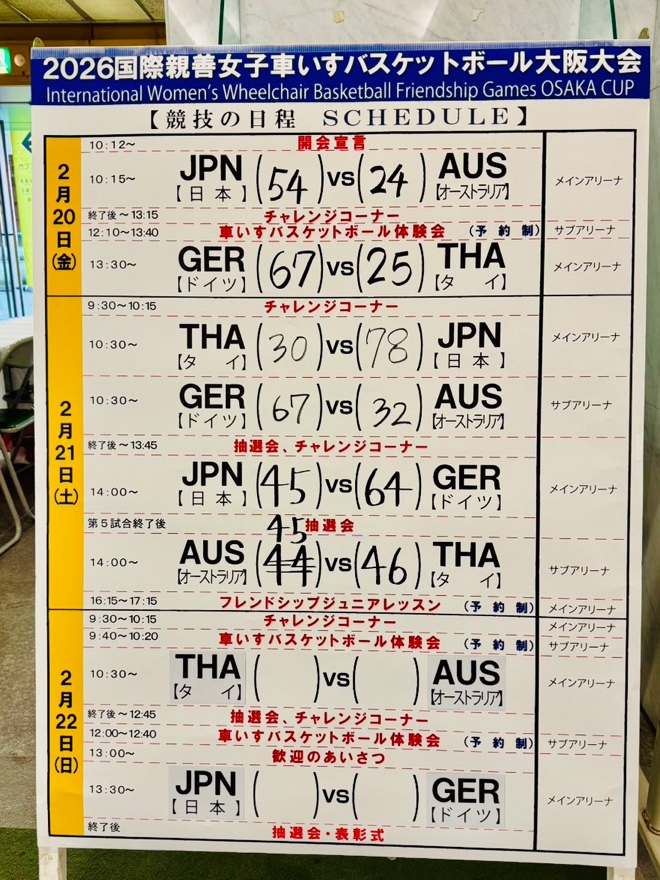 2026国際親善女子車いすバスケットボール大阪大会
International Women's Wheelchair Basketball Friendship Games OSAKA CUP
【競技の日程 SCHEDULE】
2月20日(金)
10:12～ 開会宣言
10:15～ JPN【日本】 (54) vs (24) AUS【オーストラリア】 メインアリーナ
終了後～13:15 チャレンジコーナー
12:10～13:40 車いすバスケットボール体験会 (予約制) サブアリーナ
13:30～ GER【ドイツ】 (67) vs (25) THA【タイ】 メインアリーナ
2月21日(土)
9:30～10:15 チャレンジコーナー
10:30～ THA【タイ】 (30) vs (78) JPN【日本】 メインアリーナ
10:30～ GER【ドイツ】 (67) vs (32) AUS【オーストラリア】 サブアリーナ
終了後～13:45 抽選会、チャレンジコーナー
14:00～ JPN【日本】 (45) vs (64) GER【ドイツ】 メインアリーナ
第5試合終了後 抽選会
45
14:00～ AUS【オーストラリア】 (44) vs (46) THA【タイ】 サブアリーナ
16:15～17:15 フレンドシップジュニアレッスン (予約制) メインアリーナ
2月22日(日)
9:30～10:15 チャレンジコーナー メインアリーナ
9:40～10:20 車いすバスケットボール体験会 (予約制) サブアリーナ
10:30～ THA【タイ】 ( ) vs ( ) AUS【オーストラリア】 メインアリーナ
終了後～12:45 抽選会、チャレンジコーナー
12:00～12:40 車いすバスケットボール体験会 (予約制) サブアリーナ
13:00～ 歓迎のあいさつ
13:30～ JPN【日本】 ( ) vs ( ) GER【ドイツ】 メインアリーナ
終了後 抽選会・表彰式